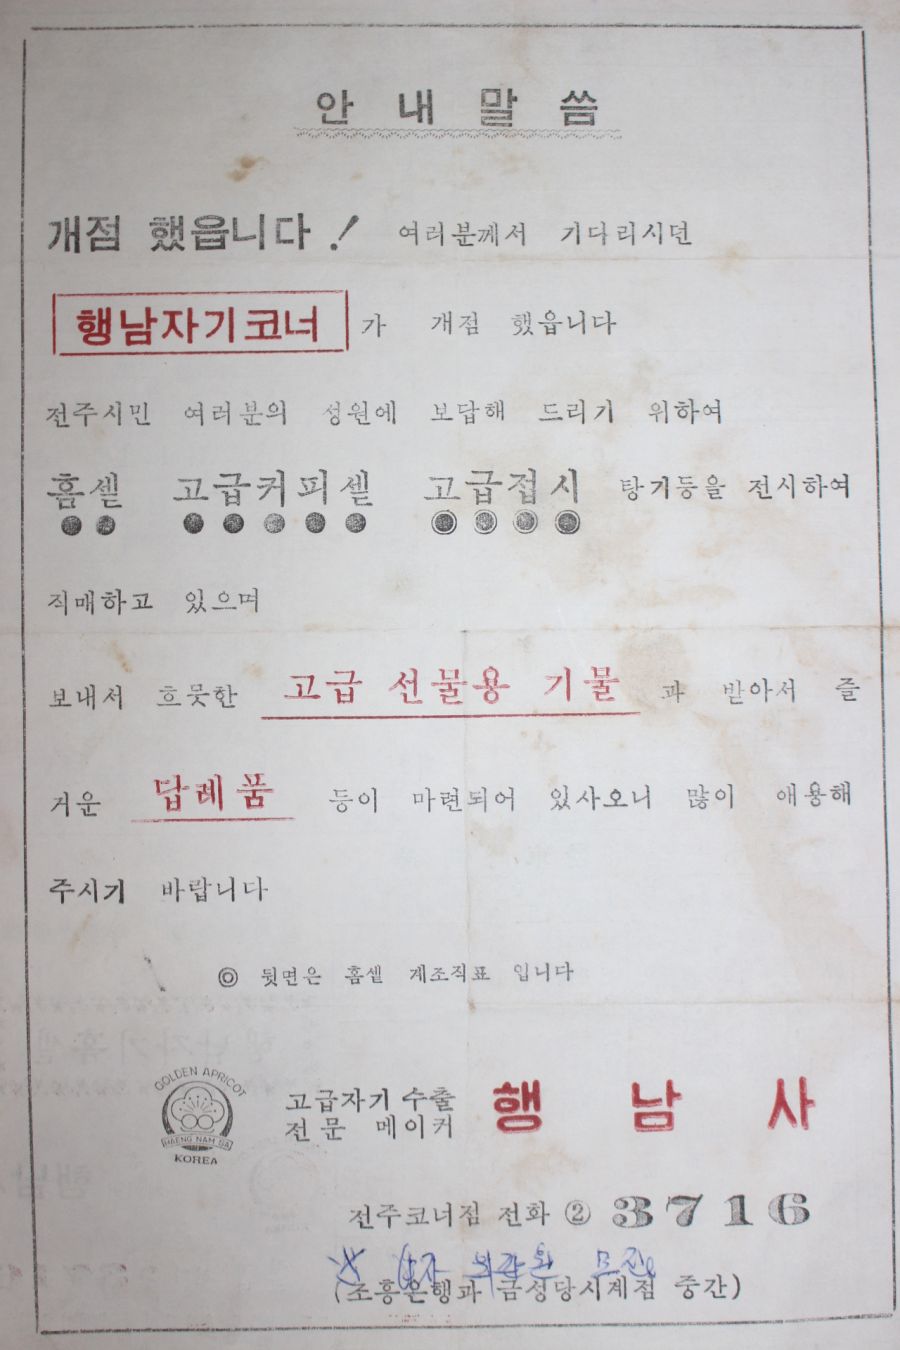 안 내 말 씀
개점 했읍니다 ! 여러분께서 기다리시던
행남자기코너 가 개점 했읍니다
전주시민 여러분의 성원에 보답해 드리기 위하여
홈셑 고급커피셑 고급접시 탕기등을 전시하여
직매하고 있으며
보내서 흐뭇한 고급 선물용 기물 과 받아서 즐
거운 답례품 등이 마련되어 있사오니 많이 애용해
주시기 바랍니다
◎ 뒷면은 홈셑 계조직표 입니다
GOLDEN APRICOT
HAENG NAM SA
KOREA
고급자기 수출
전문 메이커
행 남 사
전주코너점 전화 ② 3716
(조흥은행과 금성당시계점 중간)